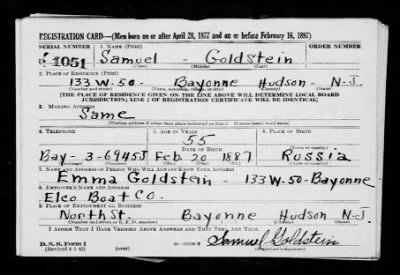 REGISTRATION CARD—(Men born on or after April 28, 1877 and on or before February 16, 1897)
SERIAL NUMBER 1. NAME (Print) ORDER NUMBER
U 1051 Samuel - Goldstein
(First) (Middle) (Last)
2. PLACE OF RESIDENCE (Print)
133 W. 50 - Bayonne Hudson - N-J.
(Number and street) (Town, township, village, or city) (County) (State)
[THE PLACE OF RESIDENCE GIVEN ON THE LINE ABOVE WILL DETERMINE LOCAL BOARD
JURISDICTION; LINE 2 OF REGISTRATION CERTIFICATE WILL BE IDENTICAL]
3. MAILING ADDRESS
Same
[Mailing address if other than place indicated on line 2. If same insert word same]
4. TELEPHONE 5. AGE IN YEARS 6. PLACE OF BIRTH
55
DATE OF BIRTH
Bay - 3-6945J Feb. 20 1887 Russia
7. NAME AND ADDRESS OF PERSON WHO WILL ALWAYS KNOW YOUR ADDRESS
Emma Goldstein - 133 W. 50 - Bayonne
8. EMPLOYER'S NAME AND ADDRESS
Elco Boat Co.
9. PLACE OF EMPLOYMENT OR BUSINESS
North St. Bayonne Hudson N-J.
(Number and street or R. F. D. number) (Town) (County) (State)
I AFFIRM THAT I HAVE VERIFIED ABOVE ANSWERS AND THAT THEY ARE TRUE.
D. S. S. Form 1
(Revised 4-1-42) (over) Samuel Goldstein